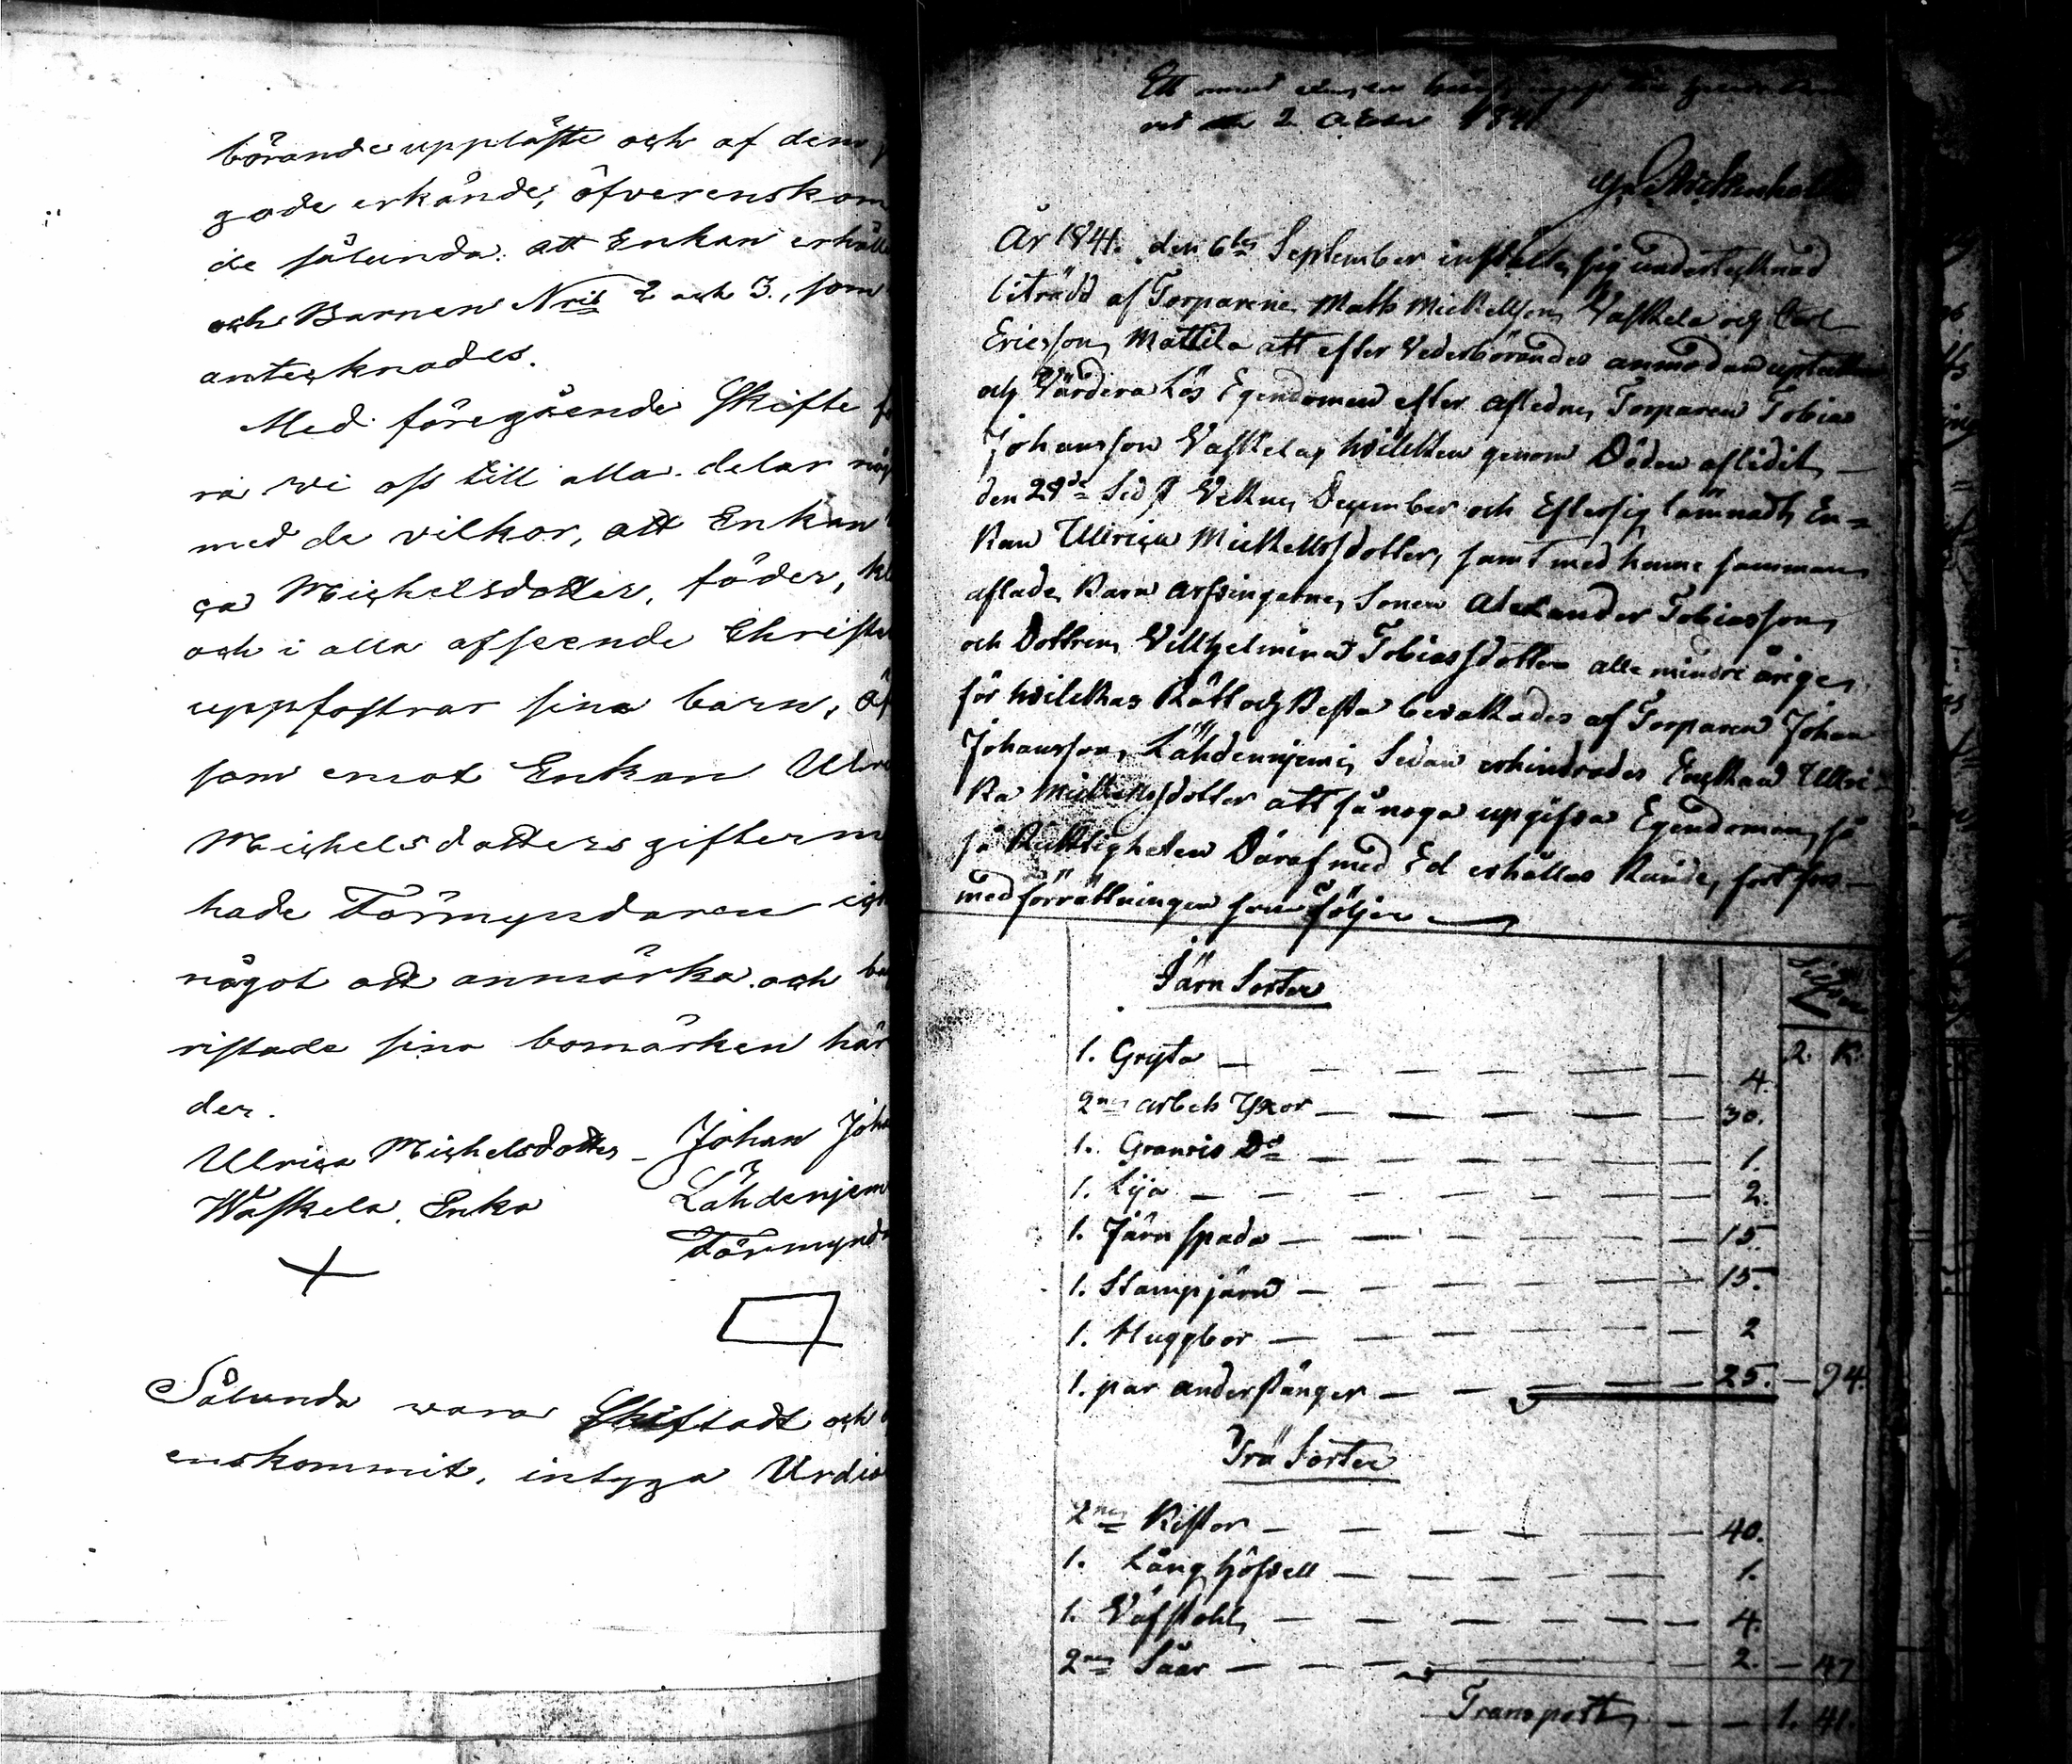 börande uppläste och af dem
gode erkände, öfverenskom
de sålunda: att Enkan erhåll
och Barnen Nris 2 och 3., som
antecknades.
Med föregående Skifte
ra wi oss till alla delar nöj
med de vilkor, att Enkan
ca Michelsdotter, föder, kl
och i alla afseende Christe
uppfostrar sina barn, äf
som emot Enkan Ulri
Michelsdotters gifterm
hade Förmyndaren
något att anmärka och
ristade sina bomärken här
der.
Ulrica Michelsdotter – Johan Joha
Waskela Enka Lähdenjem
Förmynd
Sålunda vara Skiftadt och
enskommit, intyga Urdia
Ett
2 1841
År 1841. den 6te September instälte sig undertecknad
biträdd af Torparene Matts Mickellsson Vaskela och Carl
Ericsson Mattila att efter Vederbörandes anmodan uptekna
och Värdera Lös Egendomen efter afledne Torparen Tobias
Johansson Vaskela, hvilcken genom Döden aflidit –
den 29de Sidst Vekne December och Efter sig lämnadt En=
kan Ullrica Mickellsdotter, samt med henne samman
aflade Barn arfvingarne, Sonen Alexander Tobiasson
och Dottren Villhelmina Tobiasdotter alle mindreårige,
för hvilckas Rätt och Bästa bevakades af Torparen Johan
Johansson Lähdennjemi, Sedan erhindrades Enckan Ullri=
ka Mickellsdotter att så noga upgifva Egendomen, så
få Ricktigheten Däraf med Ed erhållas Kunde, fortfors –
med förrättningen som följer
Järn Sorter
Silfver
R. K.
1. Gryta — — — — 4.
2ne arbets Yxor — — — — 30.
1. Granris Do — — — — 1.
1. Lija — — — — 2.
1. Järn spada — — — — 15.
1. Stampjärn — — — — 15.
1. Huggbor — — — — 2
1. par anderstänger — — — — 25. — 94.
Trä Sorter
2ne Kistor — — — — 40.
1. Lång Höfvell — — — — 1.
1. Väfstohl — — — — 4.
2ne Såar — — — — 2. — 47
Transport — — 1. 41.